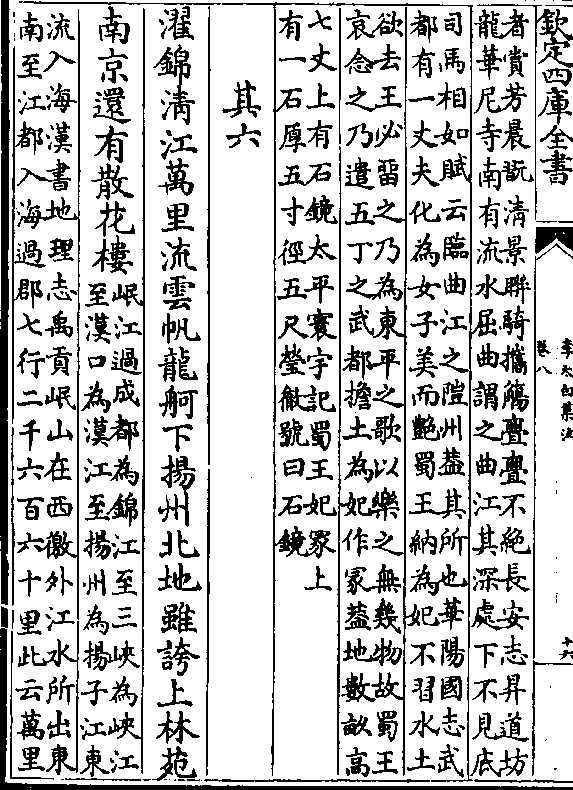 欽定四庫全書
李太白集注
卷八
十六
者賞芳晨翫清景聯騎攜觴亹亹不絕長安志昇道坊
龍華尼寺南有流水屈曲謂之曲江其深處下不見底
司馬相如賦云臨曲江之隑州葢其所也華陽國志武
都有一丈夫化為女子美而艶蜀王納為妃不習水土
欲去王必留之乃為東平之歌以樂之無幾物故蜀王
哀念之乃遣五丁之武都擔土為妃作冡葢地數畝高
七丈上有石鏡太平寰宇記蜀王妃冡上
有一石厚五寸徑五尺瑩徹號曰石鏡
其六
濯錦清江萬里流雲帆龍舸下揚州北地雖誇上林苑
南京還有散花樓
岷江過成都為錦江至三峽為峽江
至漢口為漢江至揚州為揚子江東
流入海漢書地理志禹貢岷山在西徼外江水所出東
南至江都入海過郡七行二千六百六十里此云萬里